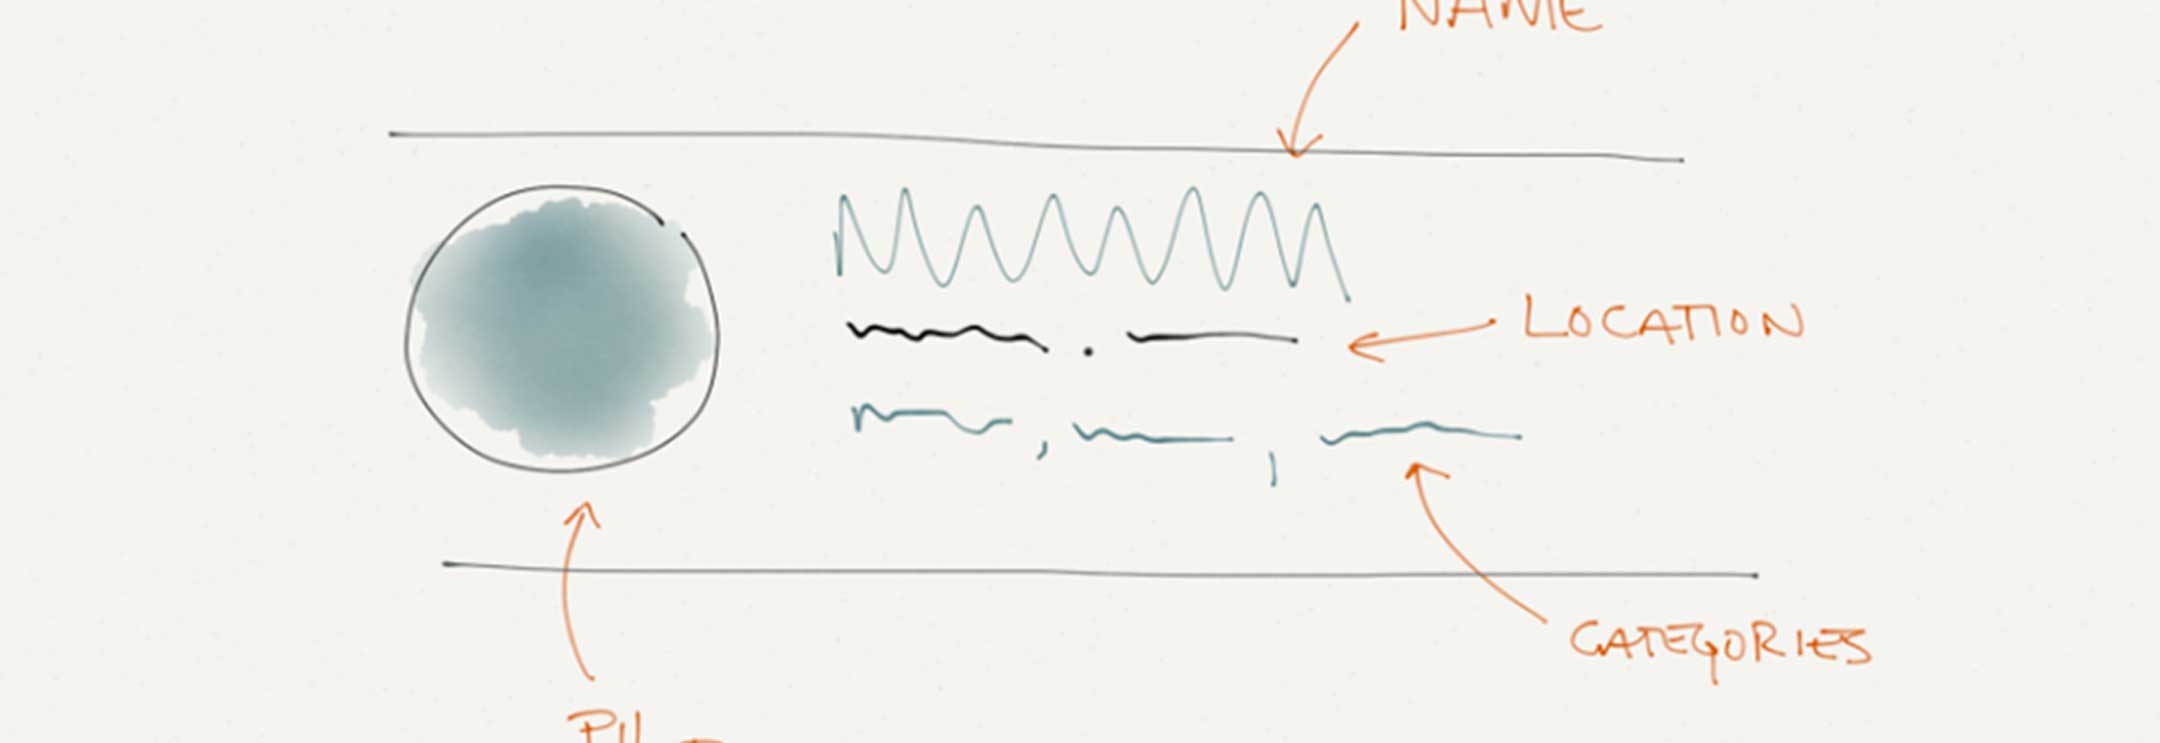 NAME
LOCATION
CATEGORIES